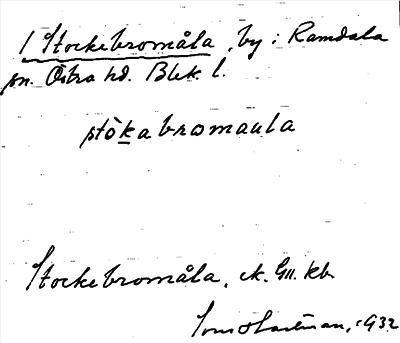 / Stockebromåla, by i Ramdala
sn. Östra hd. Blek. l.
stòkabromaula
Stockebromåla, ek. GII. kb.
1932